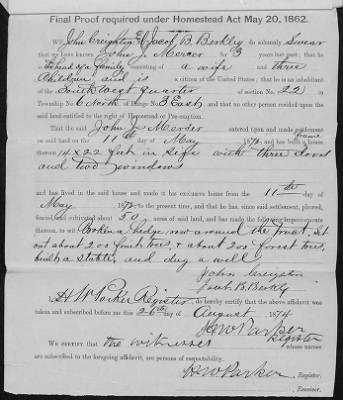 Final Proof required under Homestead Act May 20, 1862.
We John Creighton & Jacob B. Berkley do solemnly Swear
that we have known John J. Mercer for 3 years last past; that he is
Head of a family consisting of a wife and three
Children and is a citizen of the United States; that he is an inhabitant
of the South West quarter of section No. 22 in
Township No. 6 North of Range No. 3 East, and that no other person resided upon the
said land entitled to the right of Homestead or Pre-emption.
That the said John J. Mercer entered upon and made settlement
on said land on the 11th day of May 1872, and has built a frame
house thereon 14 x 22 feet in size with three doors
and two windows
and has lived in the said house and made it his exclusive home from the 11th day of
May 1872 to the present time, and that he has, since said settlement, plowed,
fenced, and cultivated about 50 acres of said land, and has made the following improvements
thereon, to wit: Broken a hedge row around the tract, Set
out about 200 fruit trees, & about 200 forest trees,
built a stable, and dug a well
John Creighton
Jacob B. Berkley
I, H W Parker Register, do hereby certify that the above affidavit was
taken and subscribed before me this 26th day of August 1874
H W Parker
Register
We certify that the witnesses whose names
are subscribed to the foregoing affidavit, are persons of respectability.
H W Parker, Register.
, Receiver.